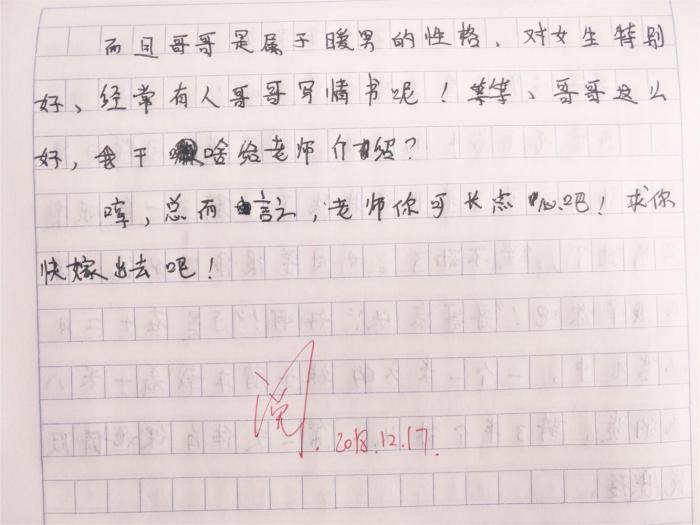 而且哥哥是属于暖男的性格,对女生特别
好、经常有人哥哥写情书呢!等等、哥哥这么
好,我干啥给老师介绍?
哼,总而言之,老师你可长点心吧!求你
快嫁出去吧!
阅
2018.12.17.